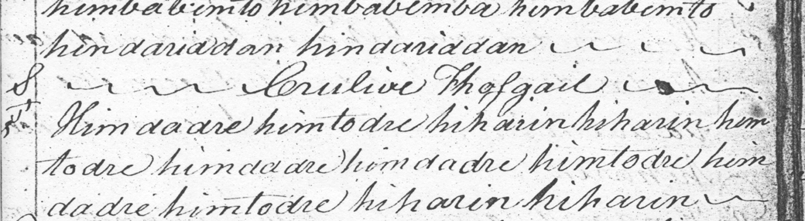 himbabemto himbabemba himbabemto
hindariddan hindariddan
Crulive Thofgail
Himdadre himtodre hiharin hiharin him
todre himdadre himdadre himtodre him
dadre himtodre hiharin hiharin